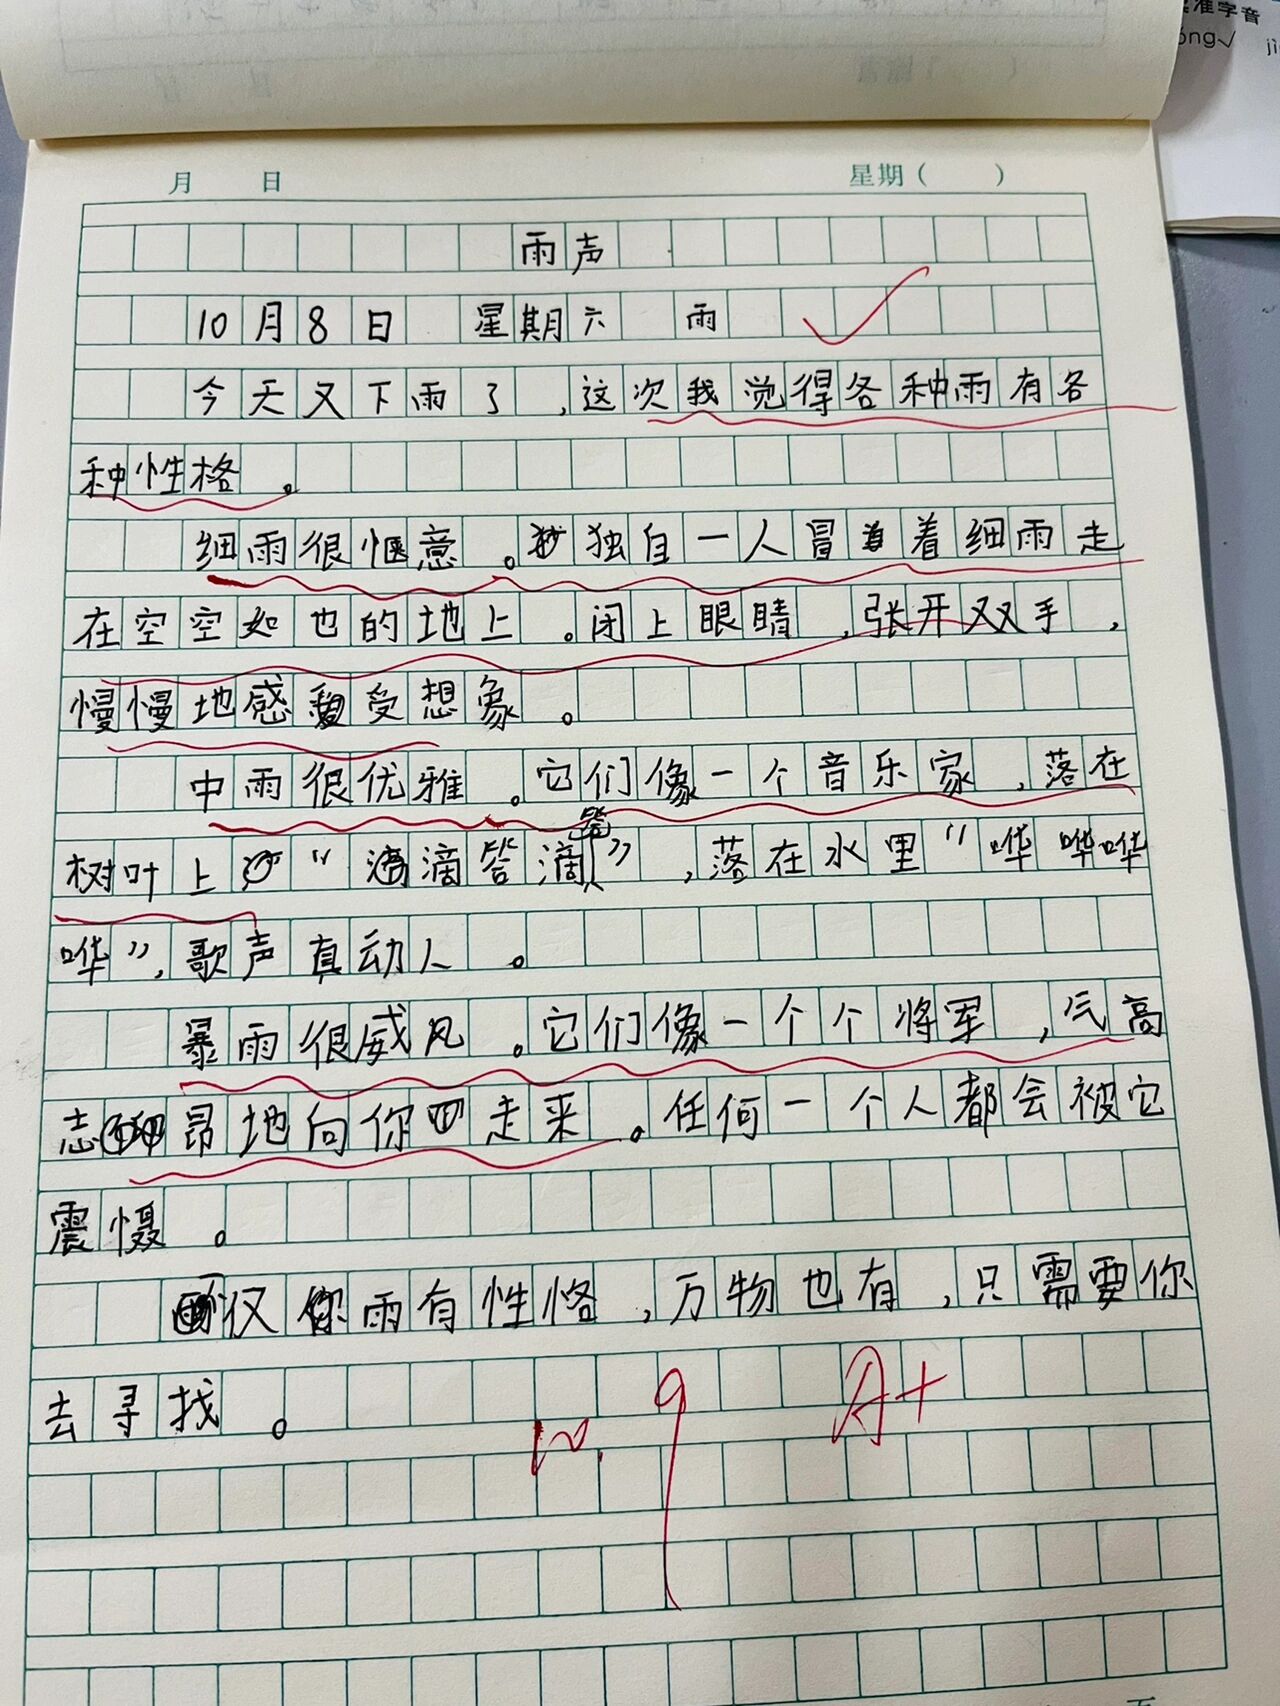 准字音
óng√ jì
月 日 星期( )
雨声
10月8日 星期六 雨
今天又下雨了,这次我觉得各种雨有各
种性格。
细雨很惬意。独自一人冒着细雨走
在空空如也的地上。闭上眼睛,张开双手,
慢慢地感受想象。
中雨很优雅。它们像一个音乐家,落在
树叶上“滴滴答滴答”,落在水里“哗哗哗
哗”,歌声真动人。
暴雨很威风。它们像一个个将军,气高
志昂地向你走来。任何一个人都会被它
震慑。
仅雨有性格,万物也有,只需要你
去寻找。
10.9 A+